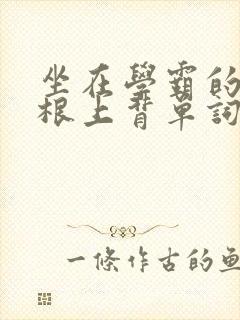 坐在學霸的
根上背單詞
一條作古的魚